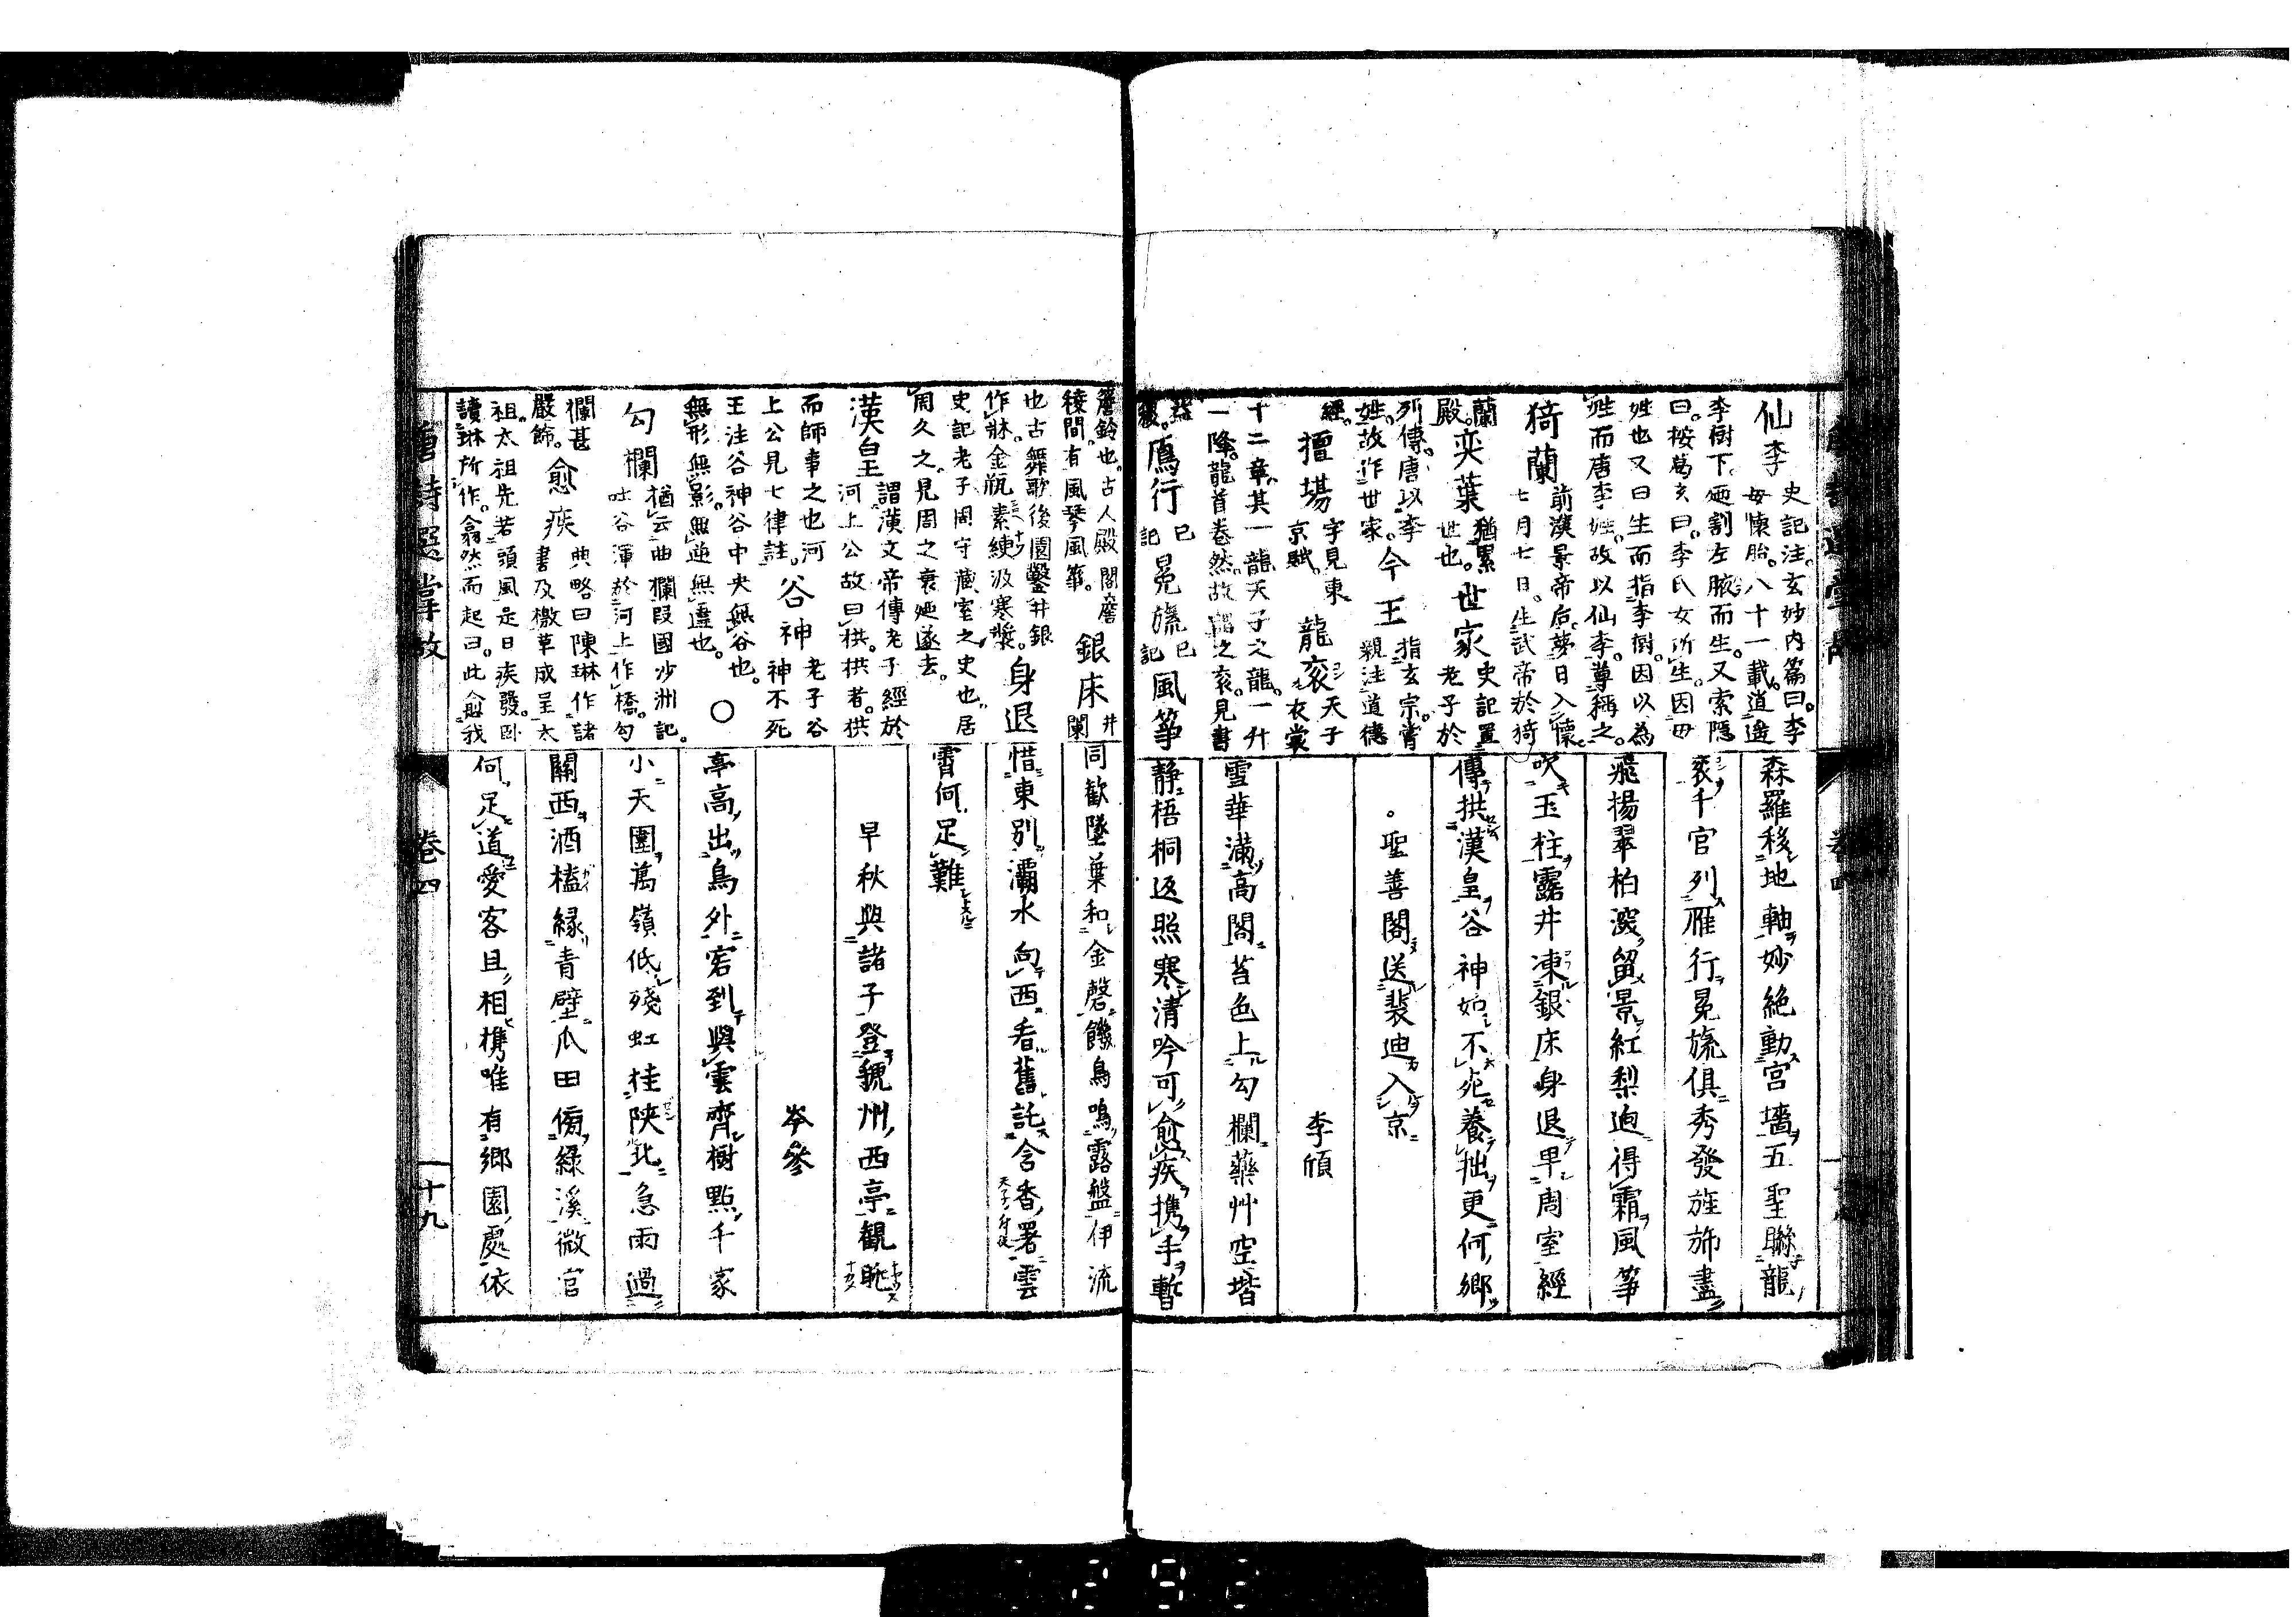 仙李 史記注。玄妙内篇曰。李
母懷胎。八十一載。道遙
李樹下。廼割左腋而生。又索隱
曰。按葛玄曰。李氏女所生。因母
姓也又曰生而指李樹。因以為
姓而唐李姓。故以仙李。尊稱之。
猗蘭 前漢景帝后。夢日入懷
七月七日。生武帝於猗
蘭
殿。奕葉 猶累
世也。世家 史記置
老子於
列傳。唐以李
姓。故作世家。今王 指玄宗。嘗
親注道德
經。擅場 字見東
京賦。龍袞 天子
衣裳
十二章。其一龍。天子之龍。一升
一降。龍首卷然。故謂之袞。見書
鴈行 已
記 冕旒 已
記 風箏
簷鈴也。古人殿閣簷
稜間。有風琴風箏。銀床 井
闌
也古舞歌後園鑿井銀
作牀。金瓶素綆汲寒漿。身退
史記老子周守藏室之史也居
周久之。見周之衰廼遂去。
漢皇 謂漢文帝傳老子經於
河上公故曰拱。拱者。拱
而師事之也河
上公見七律註。谷神 老子谷
神不死
王注谷神谷中央無谷也。
無形無影。無逆無違也。 〇
勾欄 猶云曲欄段國沙洲記。
吐谷渾於河上作橋。勾
欄甚
嚴飾。愈疾 典略曰陳琳作諸
書及檄草成呈太
祖。太祖先若頭風是日疾發。臥
讀琳所作。翕然而起曰。此愈我
森羅移地軸妙絶動宮墻五聖聯龍
袞千官列雁行冕旒俱秀發旌斾盡
飛揚翠柏深留景紅梨迥得霜風箏
吹玉柱露井凍銀床身退卑周室經
傳拱漢皇谷神如不死養拙更何鄉
聖善閣送裴迪入京
李頎
雪華滿高閣苔色上勾欄藥艸空堦
静梧桐返照寒清吟可愈疾携手暫
同歡墜葉和金磬饑鳥鳴露盤伊流
惜東別灞水向西看舊託含香署雲
霄何足難
早秋與諸子登虢州西亭觀眺
岑參
亭高出鳥外客到與雲齊樹點千家
小天圍萬嶺低殘虹挂陜北急雨過
關西酒榼緣青壁瓜田傍綠溪微官
何足道愛客且相携唯有鄉園處依
唐詩選掌故
卷四
十九